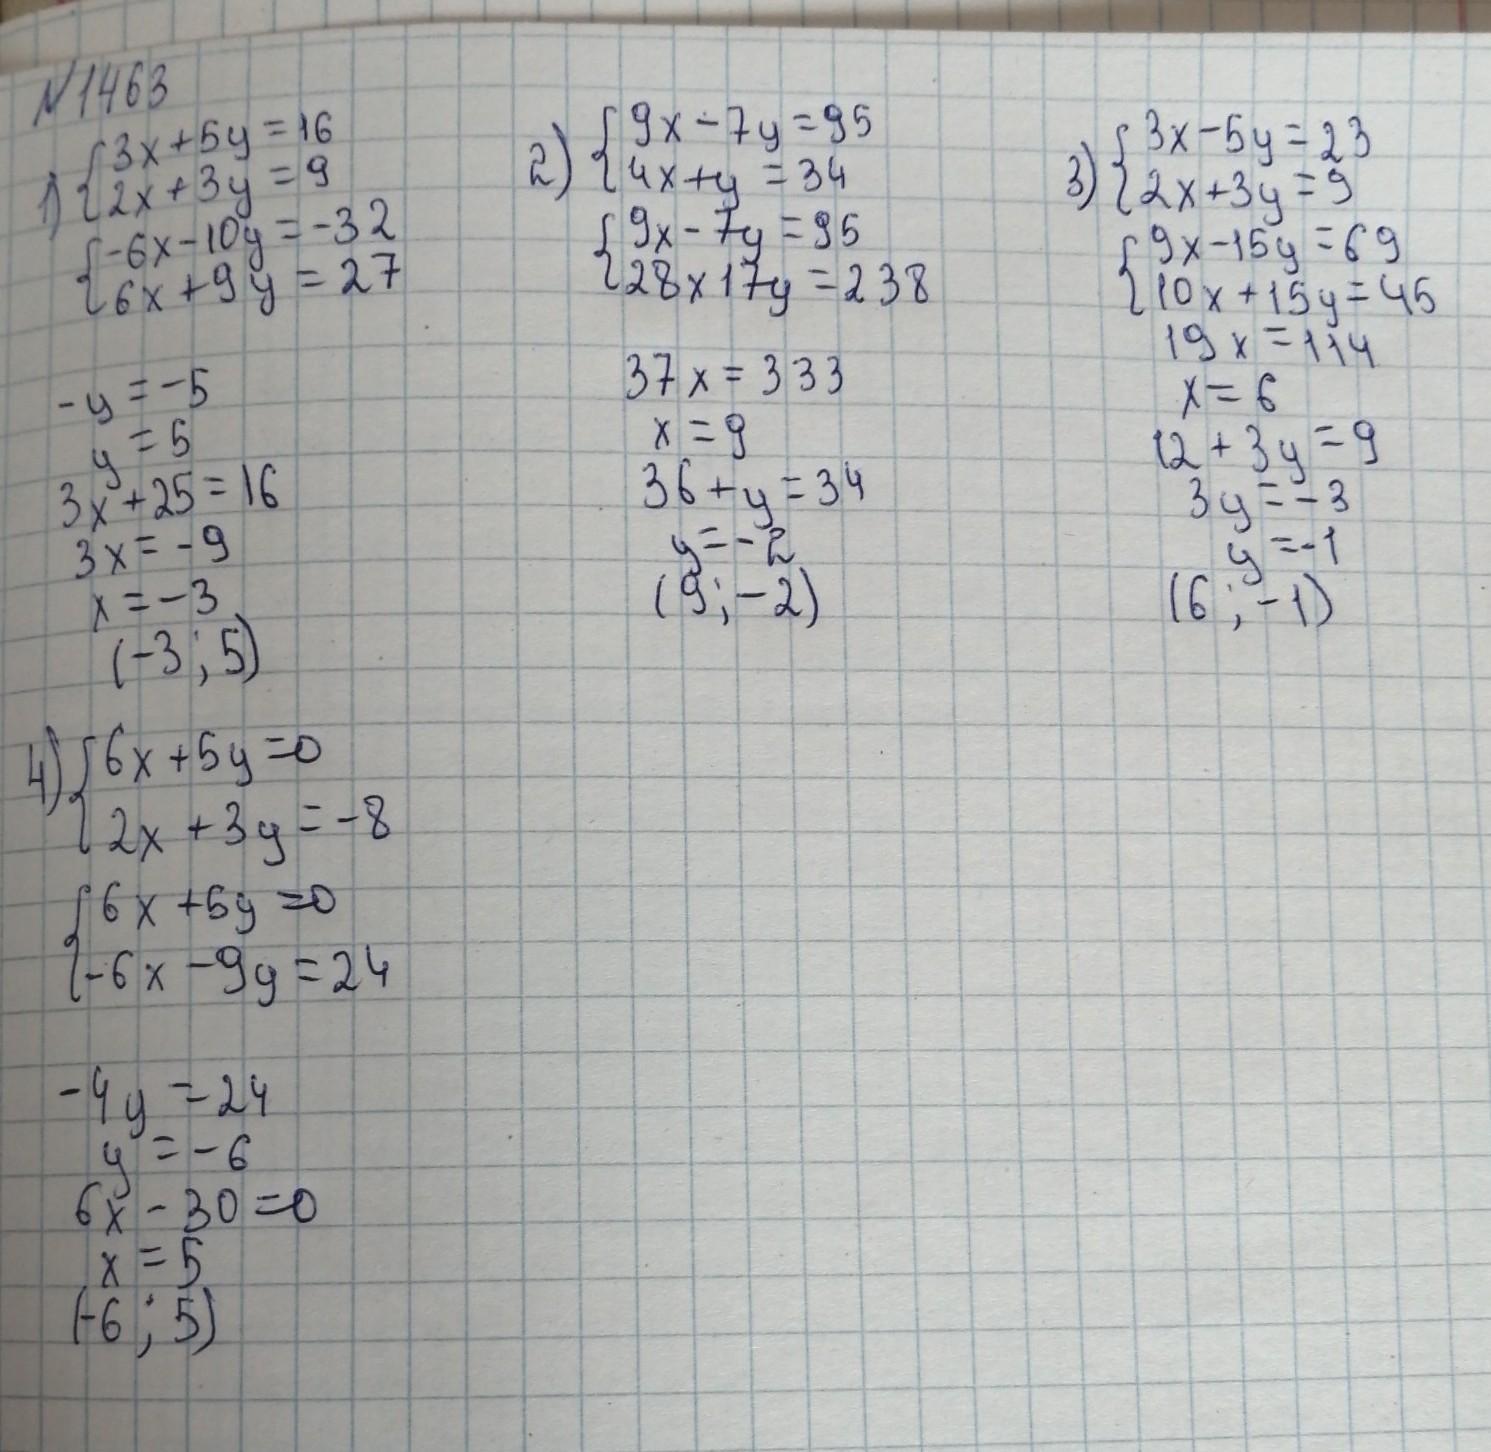 N1463
1) {3x+5y=16
{2x+3y=9
{-6x-10y=-32
{6x+9y=27
-y=-5
y=5
3x+25=16
3x=-9
x=-3
(-3;5)
2) {9x-7y=95
{4x+y=34
{9x-7y=95
{28x17y=238
37x=333
x=9
36+y=34
y=-2
(9;-2)
3) {3x-5y=23
{2x+3y=9
{9x-15y=69
{10x+15y=45
19x=114
x=6
12+3y=9
3y=-3
y=-1
(6;-1)
4) {6x+5y=0
{2x+3y=-8
{6x+5y=0
{-6x-9y=24
-4y=24
y=-6
6x-30=0
x=5
(-6;5)